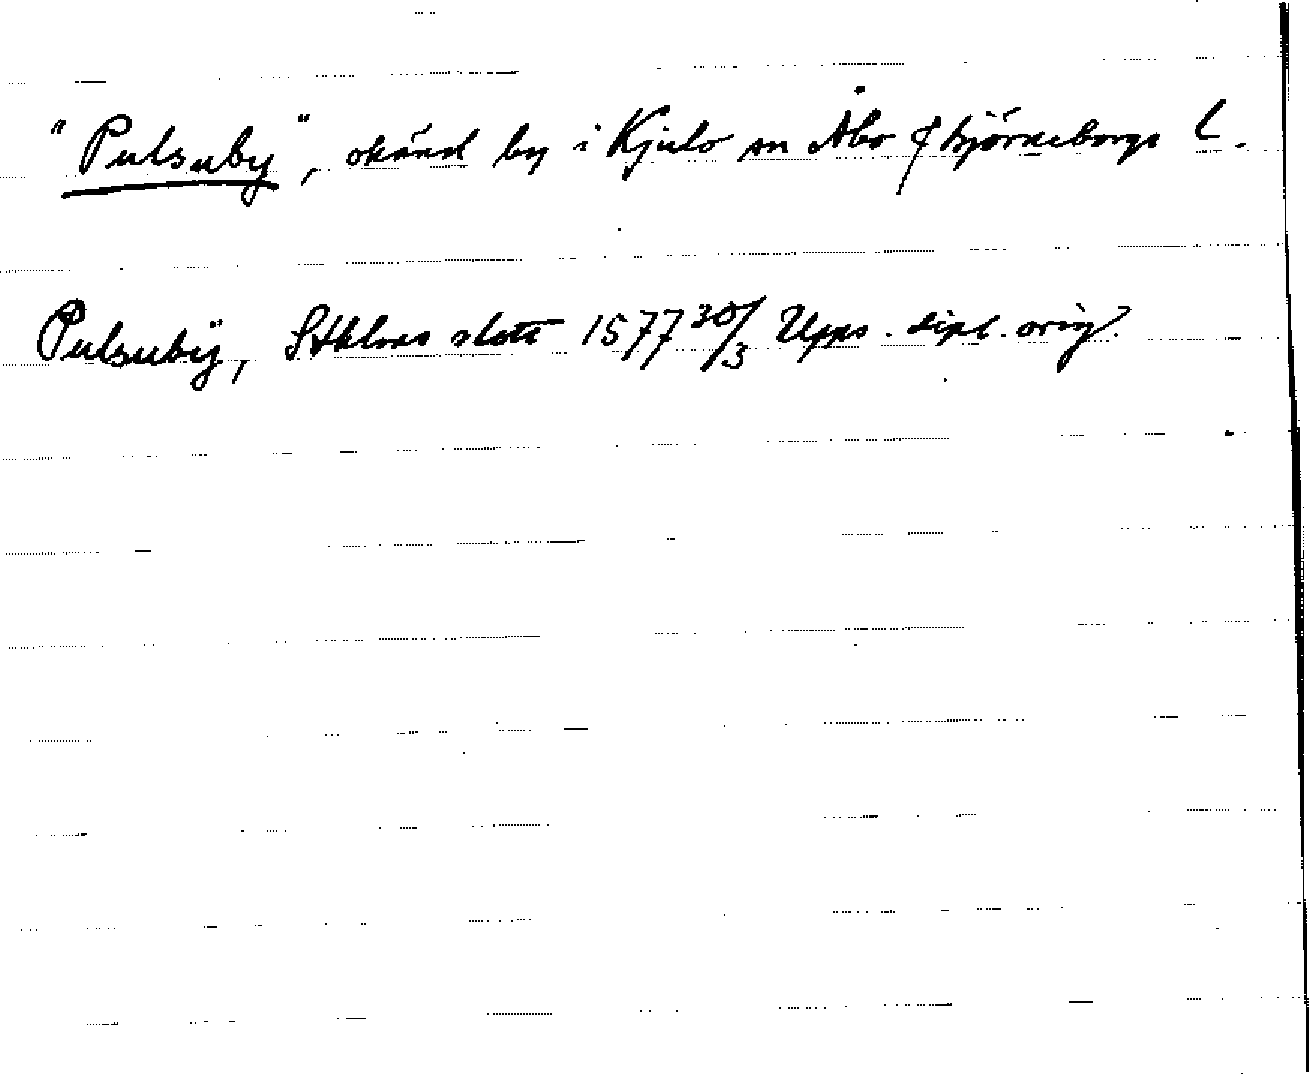 "Pulsuby", okänd by i Kjulo sn Åbo o Björneborgs l.
Pulsubÿ, Sthlms slott 1577 30/3 Upps. dipl. orig.